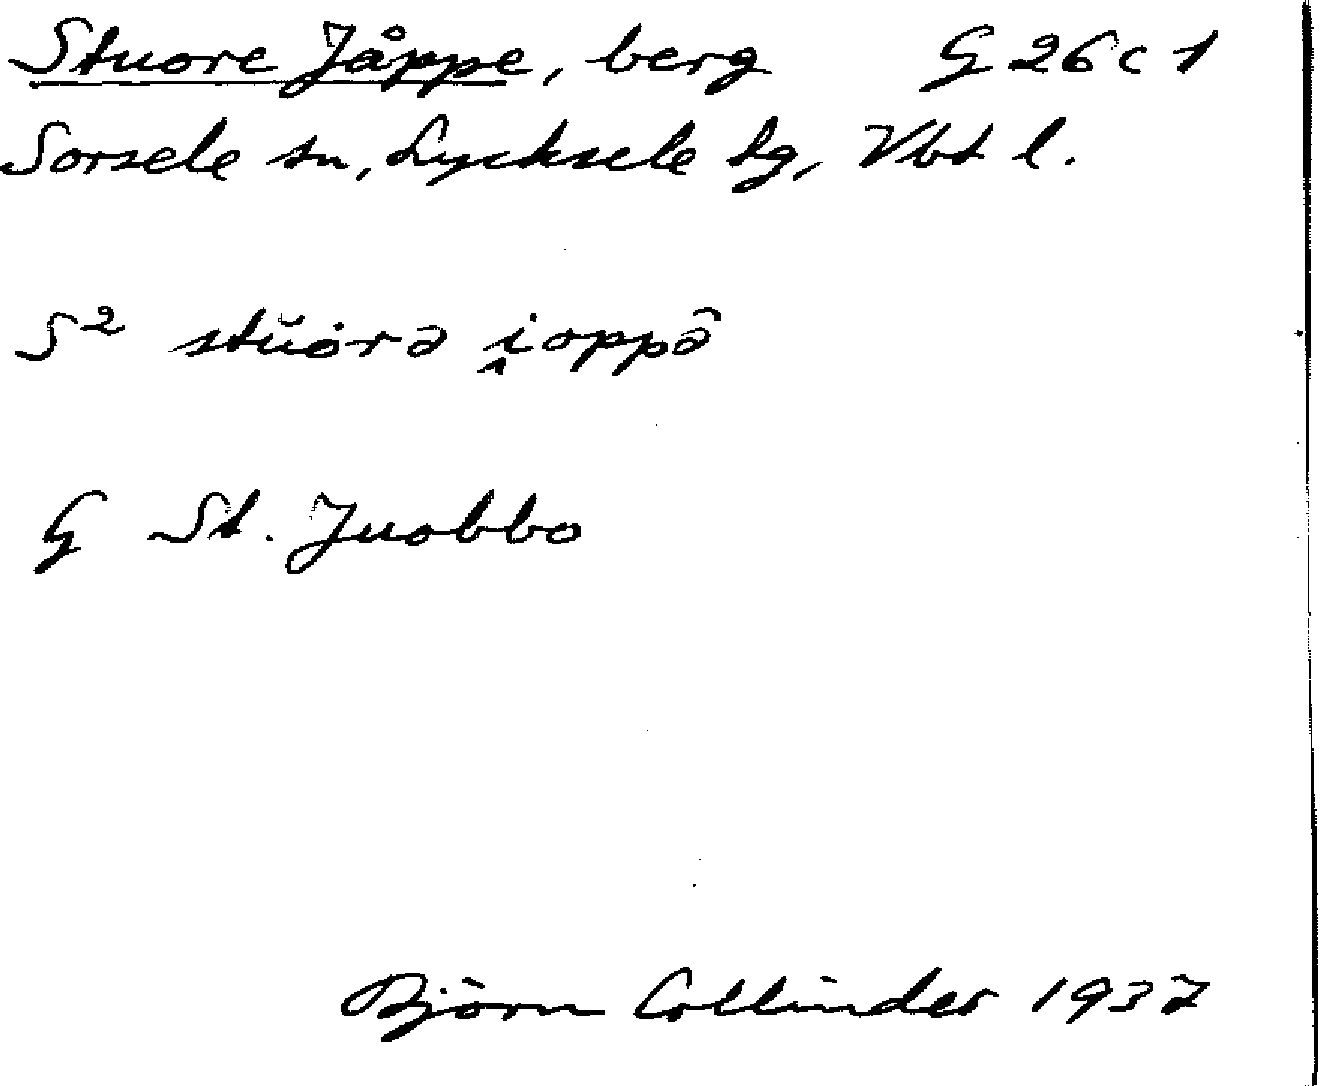 Stuore Jåppe, berg G 26 c 1
Sorsele sn, Lycksele lg, Vbt l.
S² stŭȯrə i̭oppə̂
G St. Juobbo
Björn Collinder 1937